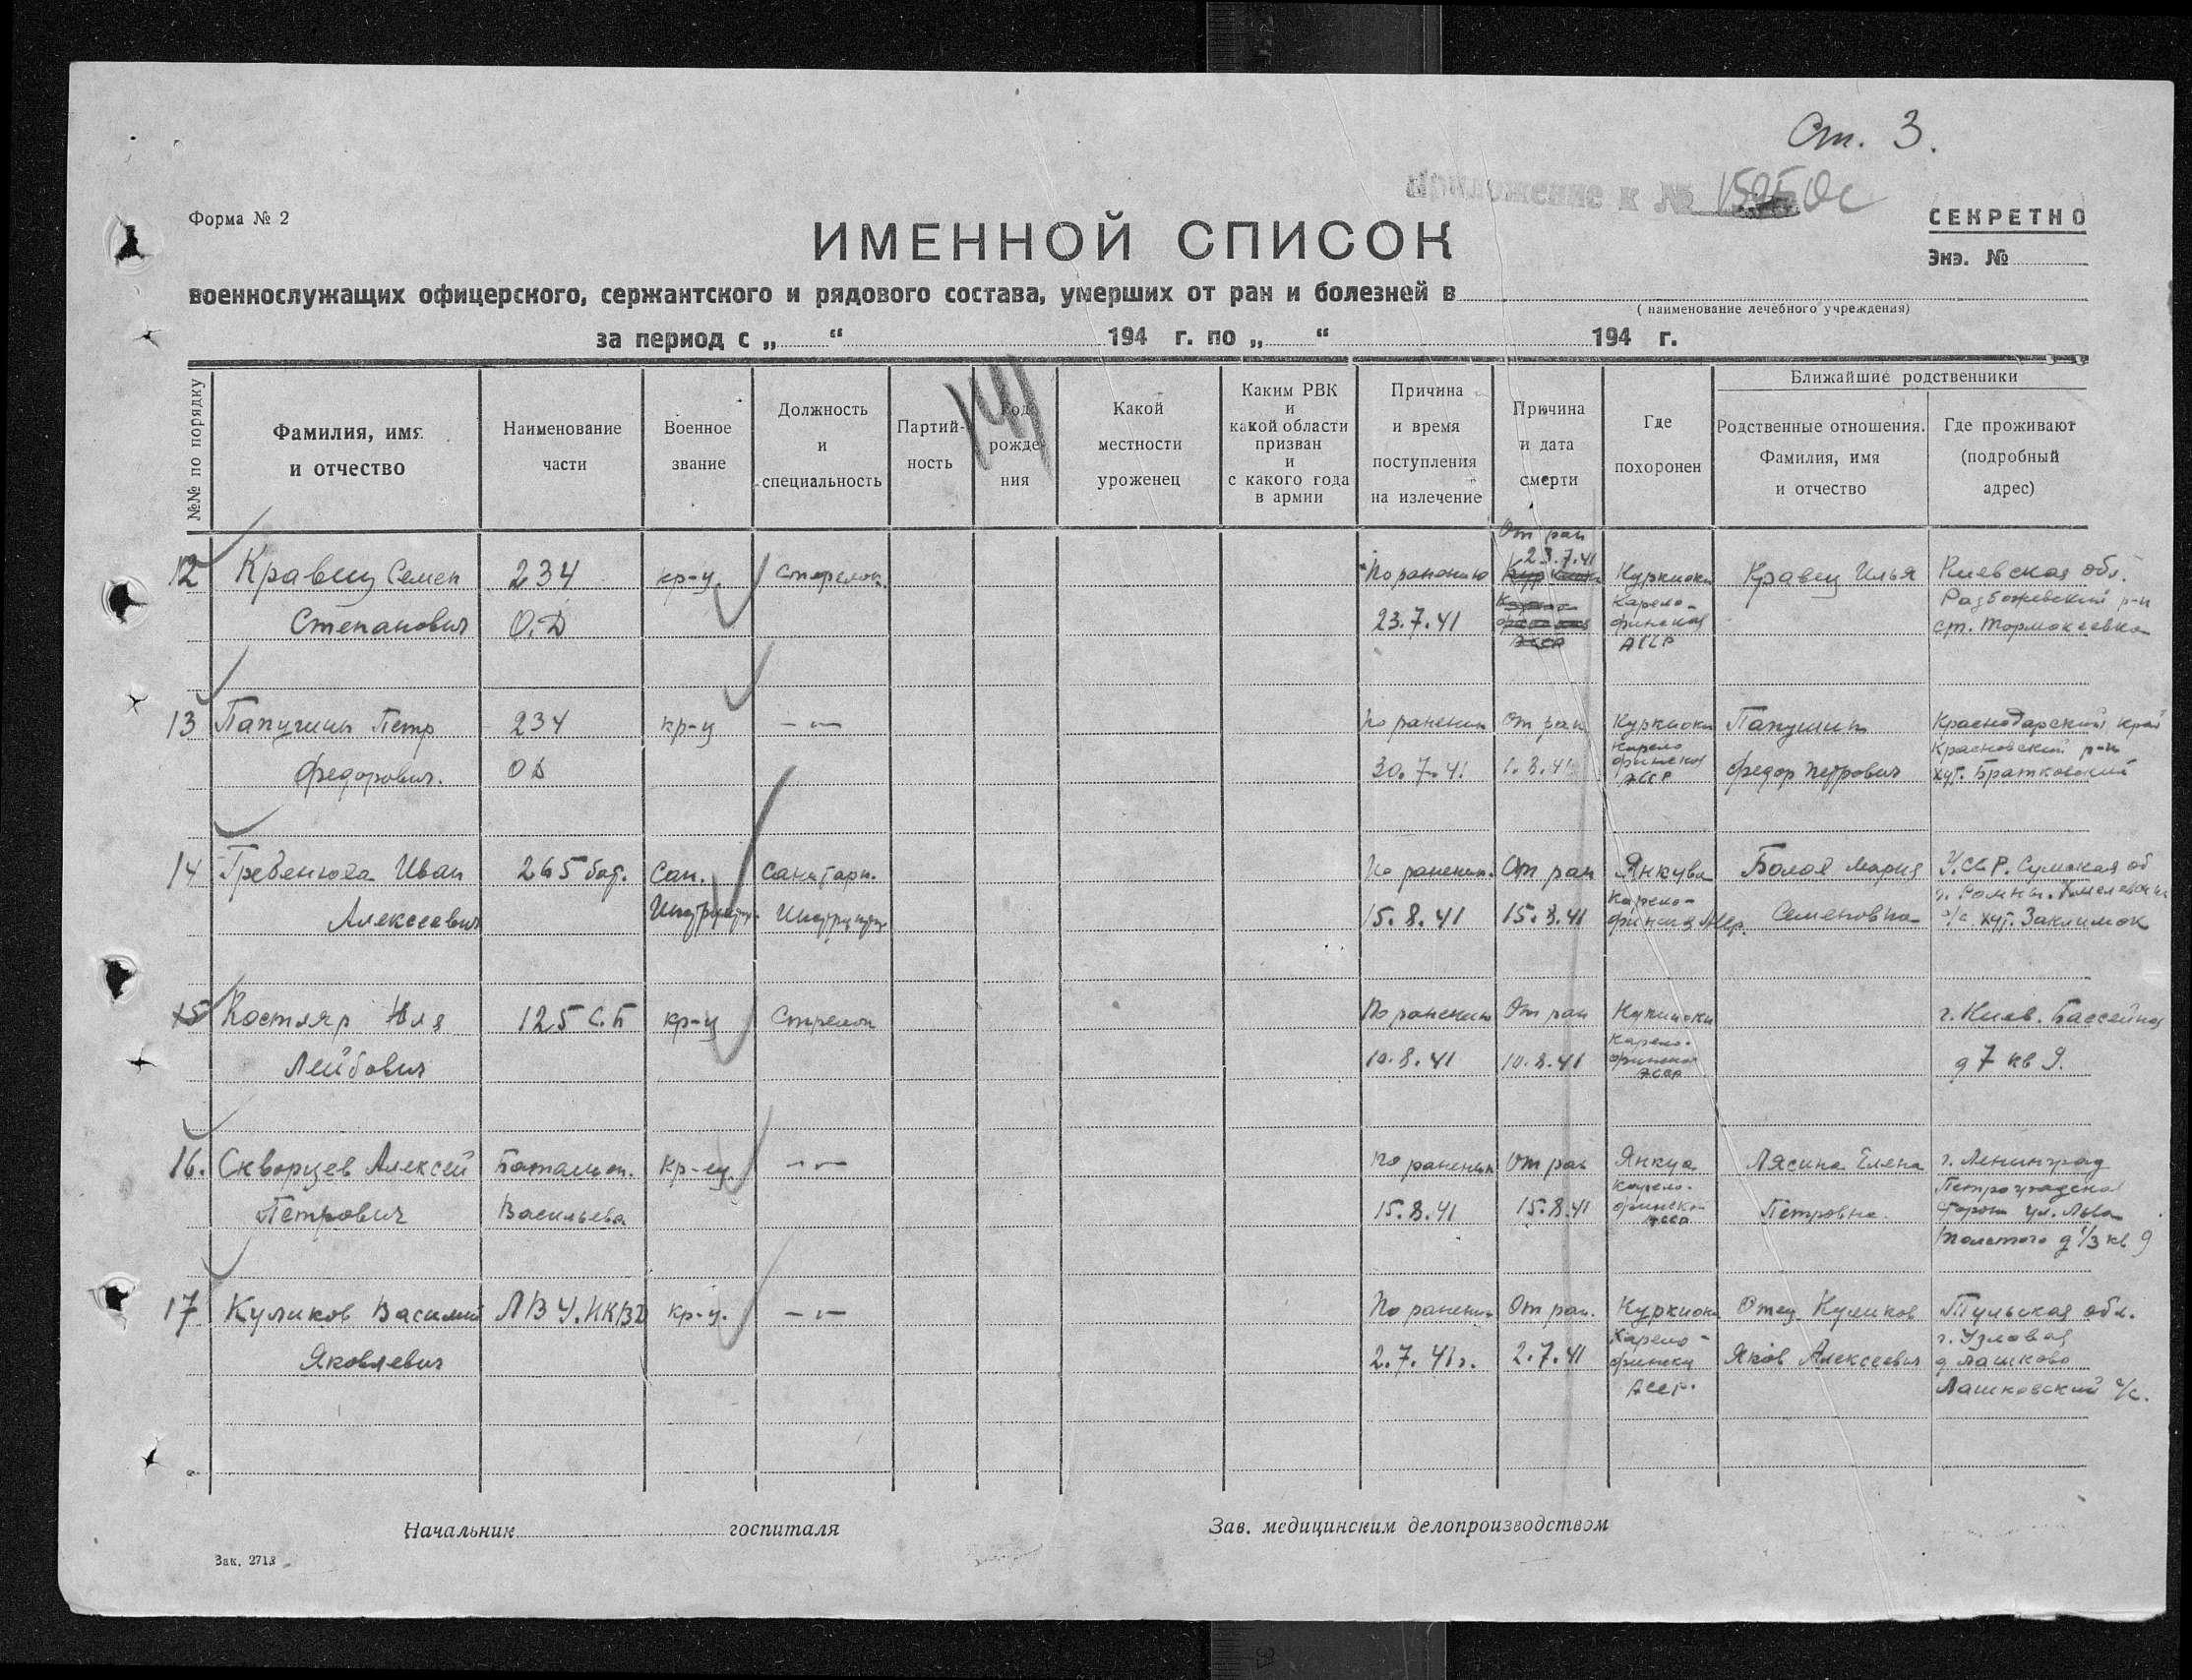 Ст. 3.
Приложение к №
Форма № 2
СЕКРЕТНО
ИМЕННОЙ СПИСОК
Экз. №
военнослужащих офицерского, сержантского и рядового состава, умерших от ран и болезней в
( наименование лечебного учреждения)
за период с „ “ 194 г. по „ “ 194 г.
№№ по порядку
Фамилия, имя
и отчество
Наименование
части
Военное
звание
Должность
и
специальность
Партий-
ность
Год
рожде-
ния
141
Какой
местности
уроженец
Каким РВК
и
какой области
призван
и
с какого года
в армии
Причина
и время
поступления
на излечение
Причина
и дата
смерти
Где
похоронен
Ближайшие родственники
Родственные отношения.
Фамилия, имя
и отчество
Где проживают
(подробный
адрес)
12 Кравец Семен
Степанович
234
О.Д
кр-ц.
Стрелок
По ранению
23.7.41
От ран
23.7.41
Куркиоки
Карело-
финская
АССР
Кравец Илья
Киевская обл.
р-н
ст.
13 Папушин Петр
Федорович.
234
ОД
кр-ц
-"-
По ранению
30.7.41
От ран
1.8.41
Куркиоки
Карело
финской
АССР
Папушин
Федор Петрович
Краснодарский край
р-н
хут. Братковский
14 Гребенюха Иван
Алексеевич
265 бат.
Сан.
Инструктр.
Санитарн.
Инструктр
По ранению.
15.8.41
От ран
15.8.41
Янкува
Карело-
Мария
Семеновна
У.С.С.Р. Сумская об
г. Ромны.
с/с. хут. Заклимок
15 Костяр Юля
Лейбович
125 С.П
кр-ц
Стрелок
По ранению
10.8.41
От ран
10.8.41
Карело-
финской
АССР
г. Киев. Бассейная
д 7 кв 9.
16. Скворцев Алексей
Петрович
Баталион.
Васильева
кр-ец.
-"-
По ранению
15.8.41
От ран
15.8.41
Янкуа
Карело-
финской
АССР
Лясина Елена
Петровна
г. Ленинград
Петроградская
Сторон ул. Льва
Толстого д 1/3 кв 9
17 Куликов Василий
Яковлевич
ЛВУ.НКВД
кр-ц.
-"-
По ранению
2.7.41г.
От ран.
2.7.41
Куркиоки
Карело-
финской
АССР.
Отец Куликов
Яков Алексеевич
Тульская обл.
г. Узловая
д Лашково
Лашковский с/с.
Начальник госпиталя
Зав. медицинским делопроизводством
Зак. 2713